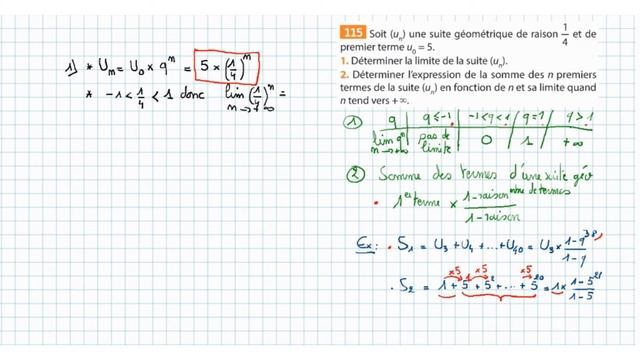 115 Soit (uₙ) une suite géométrique de raison 1/4 et de
premier terme u₀ = 5.
1. Déterminer la limite de la suite (uₙ).
2. Déterminer l'expression de la somme des n premiers
termes de la suite (uₙ) en fonction de n et sa limite quand
n tend vers +∞.
1) * Uₙ = U₀ × qⁿ = 5 × (1/4)ⁿ
* -1 < 1/4 < 1 donc lim (1/4)ⁿ =
n→+∞
① q | q ≤ -1 | -1 < q < 1 | q = 1 | q > 1
lim qⁿ n→+∞ | pas de limite | 0 | 1 | +∞
② Somme des termes d'une suite géo
• 1er terme × (1 - raison^nbre de termes)/(1 - raison)
Ex: • S₁ = U₃ + U₄ + ... + U₄₀ = U₃ × (1 - q³⁸)/(1 - q)
×5 ×5 ×5
• S₂ = 1 + 5 + 5² + ... + 5²⁰ = 1 × (1 - 5²¹)/(1 - 5)